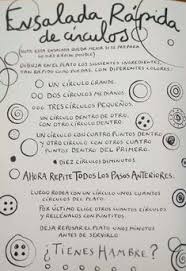 Ensalada Rápida
de círculos
NOTA: ESTA ENSALADA QUEDA MEJOR SI SE PREPARA
DIBUJA EN EL PLATO LOS SIGUIENTES INGREDIENTES,
TAN RÁPIDO COMO PUEDAS, CON DIFERENTES COLORES.
UN CÍRCULO GRANDE.
DOS CÍRCULOS MEDIANOS
TRES CÍRCULOS PEQUEÑOS.
UN CÍRCULO DENTRO DE OTRO,
CON OTRO CÍRCULO DENTRO.
UN CÍRCULO CON CUATRO PUNTOS DENTRO
Y OTRO CÍRCULO CON OTROS CUATRO
PUNTOS DENTRO DEL PRIMERO.
DIEZ CÍRCULOS DIMINUTOS
AHORA REPITE TODOS LOS PASOS ANTERIORES.
LUEGO RODEA CON UN CÍRCULO UNOS CUANTOS
CÍRCULOS DEL PLATO.
POR ÚLTIMO ELIGE OTROS CUANTOS CÍRCULOS
Y RELLÉNALOS CON PUNTITOS.
DEJA REPOSAR EL PLATO UNOS MINUTOS
ANTES DE SERVIRLO
¿TIENES HAMBRE?